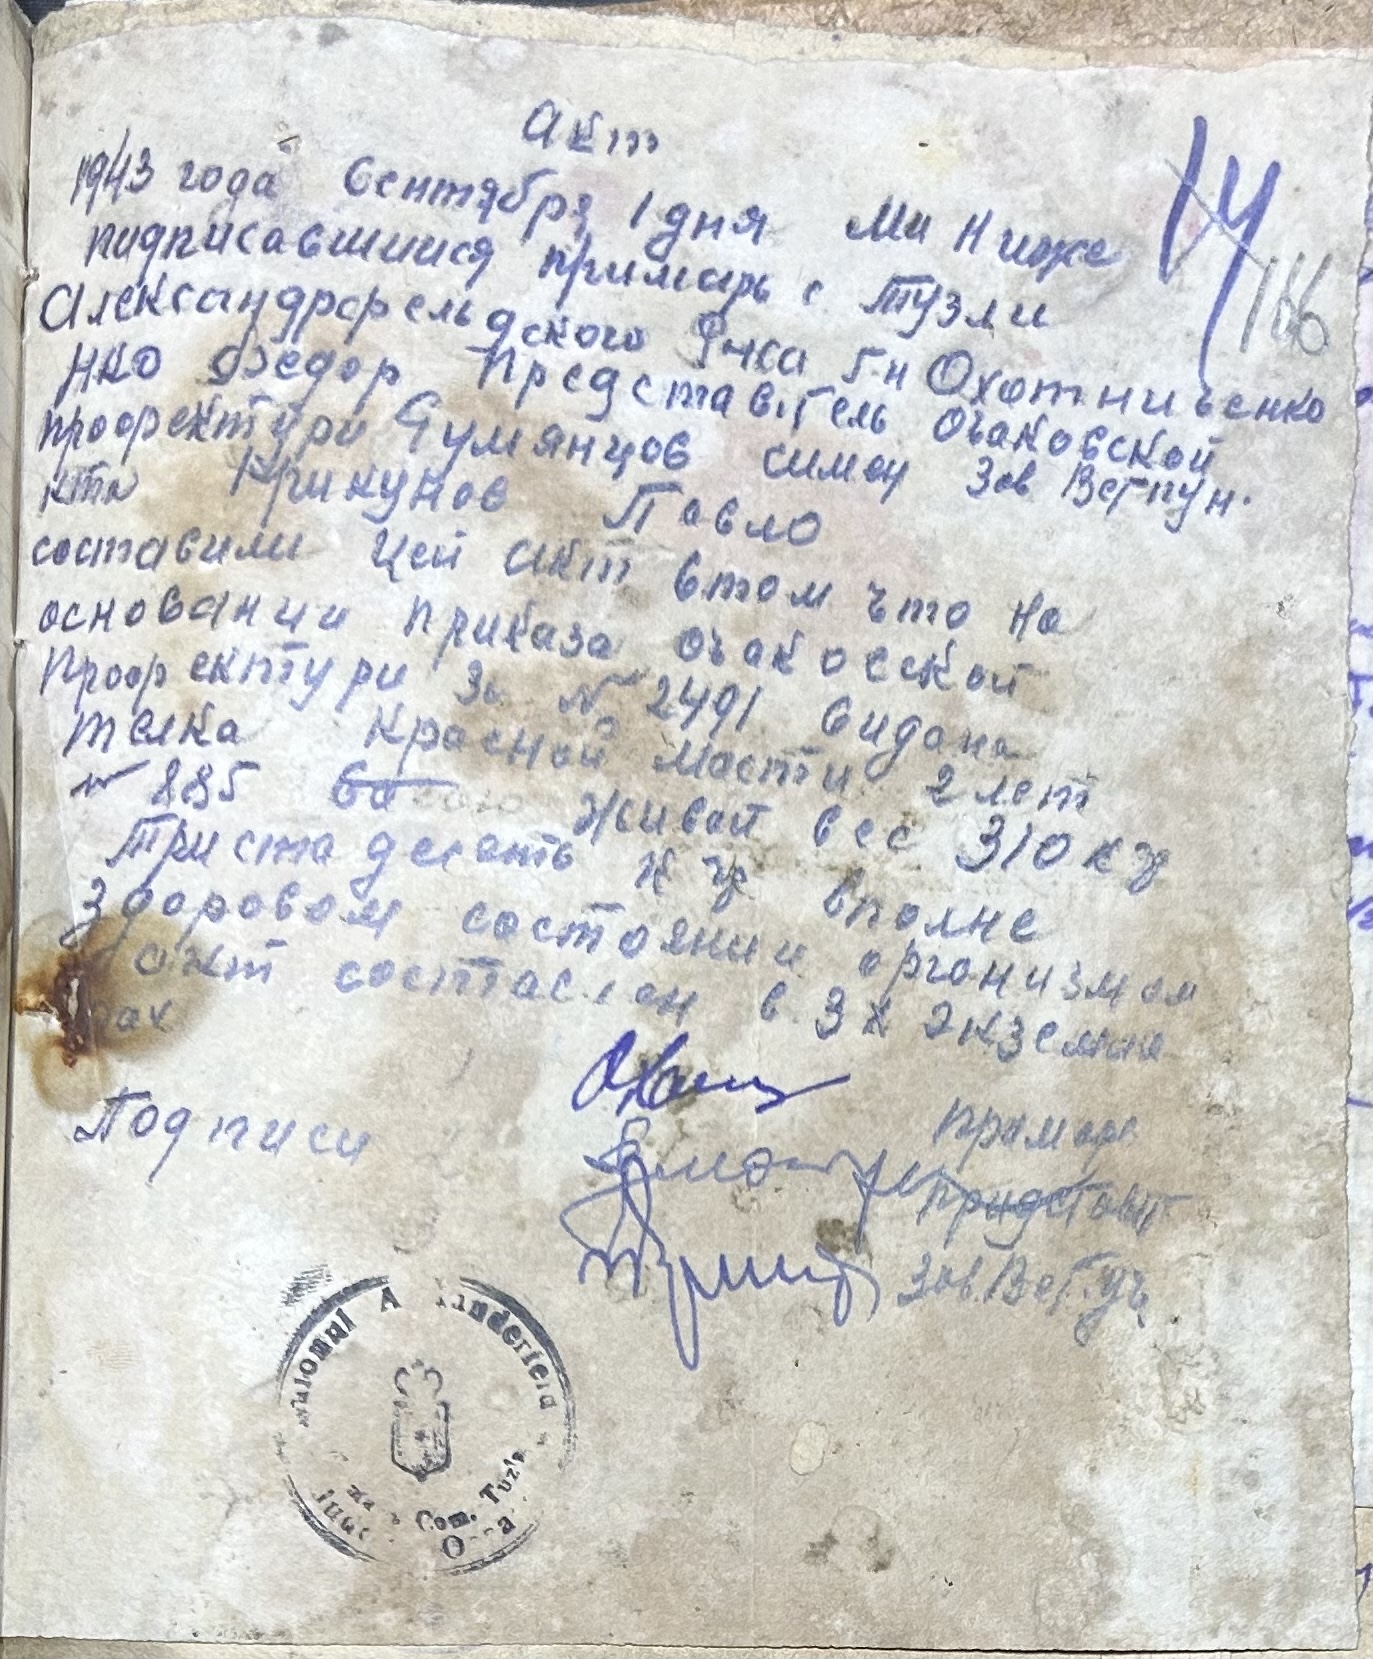 Акт
1943 года Сентября 1 дня Ми ниже
подписавшиися примарь с Тузли
Александрфельдского Р-на г-н Охотниченко
НКО Федор Представитель Очаковской
профектури Румянцов Симон Зав Ветпун.
кта Крикунов Павло
составили цей акт втом что на
основании приказа Очаковской
Профектури За № 2491 видана
телка Красной масти 2 лет
№ 885 живой вес 310 кг
Триста десять кг вполне
здоровом состоянии организмом
акт состаслен в 3х экземпля
рах
Подписи
примарь
Придставит
Зав.Вет.уч.
14
166
A
Com. Tuzla